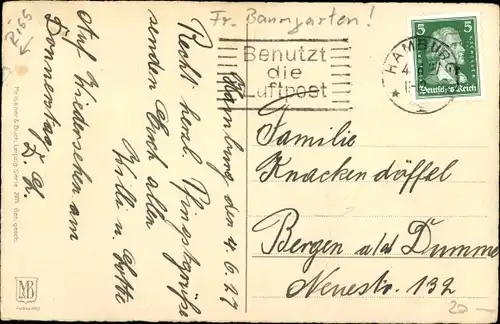 R 165
Fr. Baumgarten!
Benutzt
die
Luftpost
HAMBURG
5 5
Deutsches Reich
Hamburg den 4.6.27
Recht herzl. Pfingstgrüße
senden Euch allen
Willi u. Lotte
Auf Wiedersehen am
Donnerstag D. O.
Familie
Knackendöffel
Bergen a/d Dumme
Neuestr. 132
20 -
Meissner & Buch, Leipzig. Serie 2971. Ges. gesch.
MB